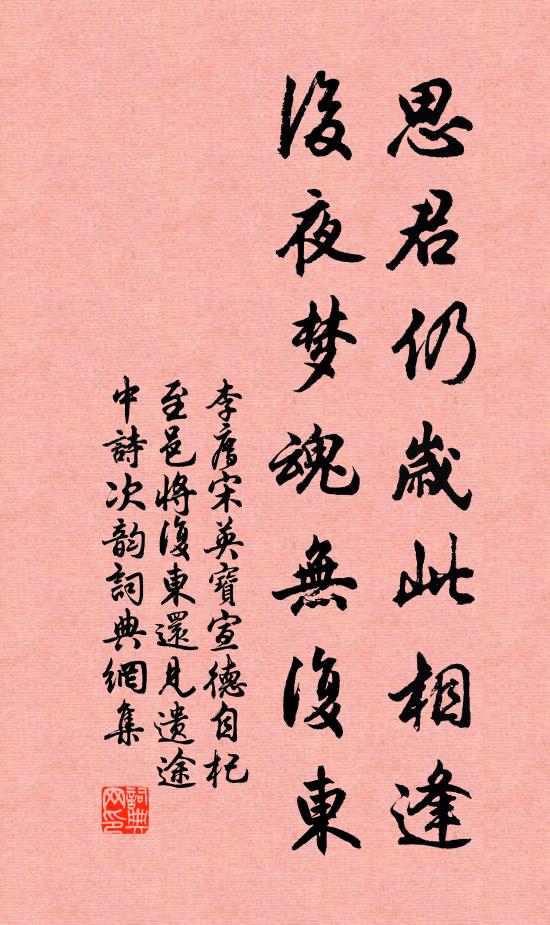 思君仍歲此相逢
後夜梦魂無復東
李廌宋英寶宣德自杞
至邑將復東還見遺途
中詩次韵詞典網集
詞典网印